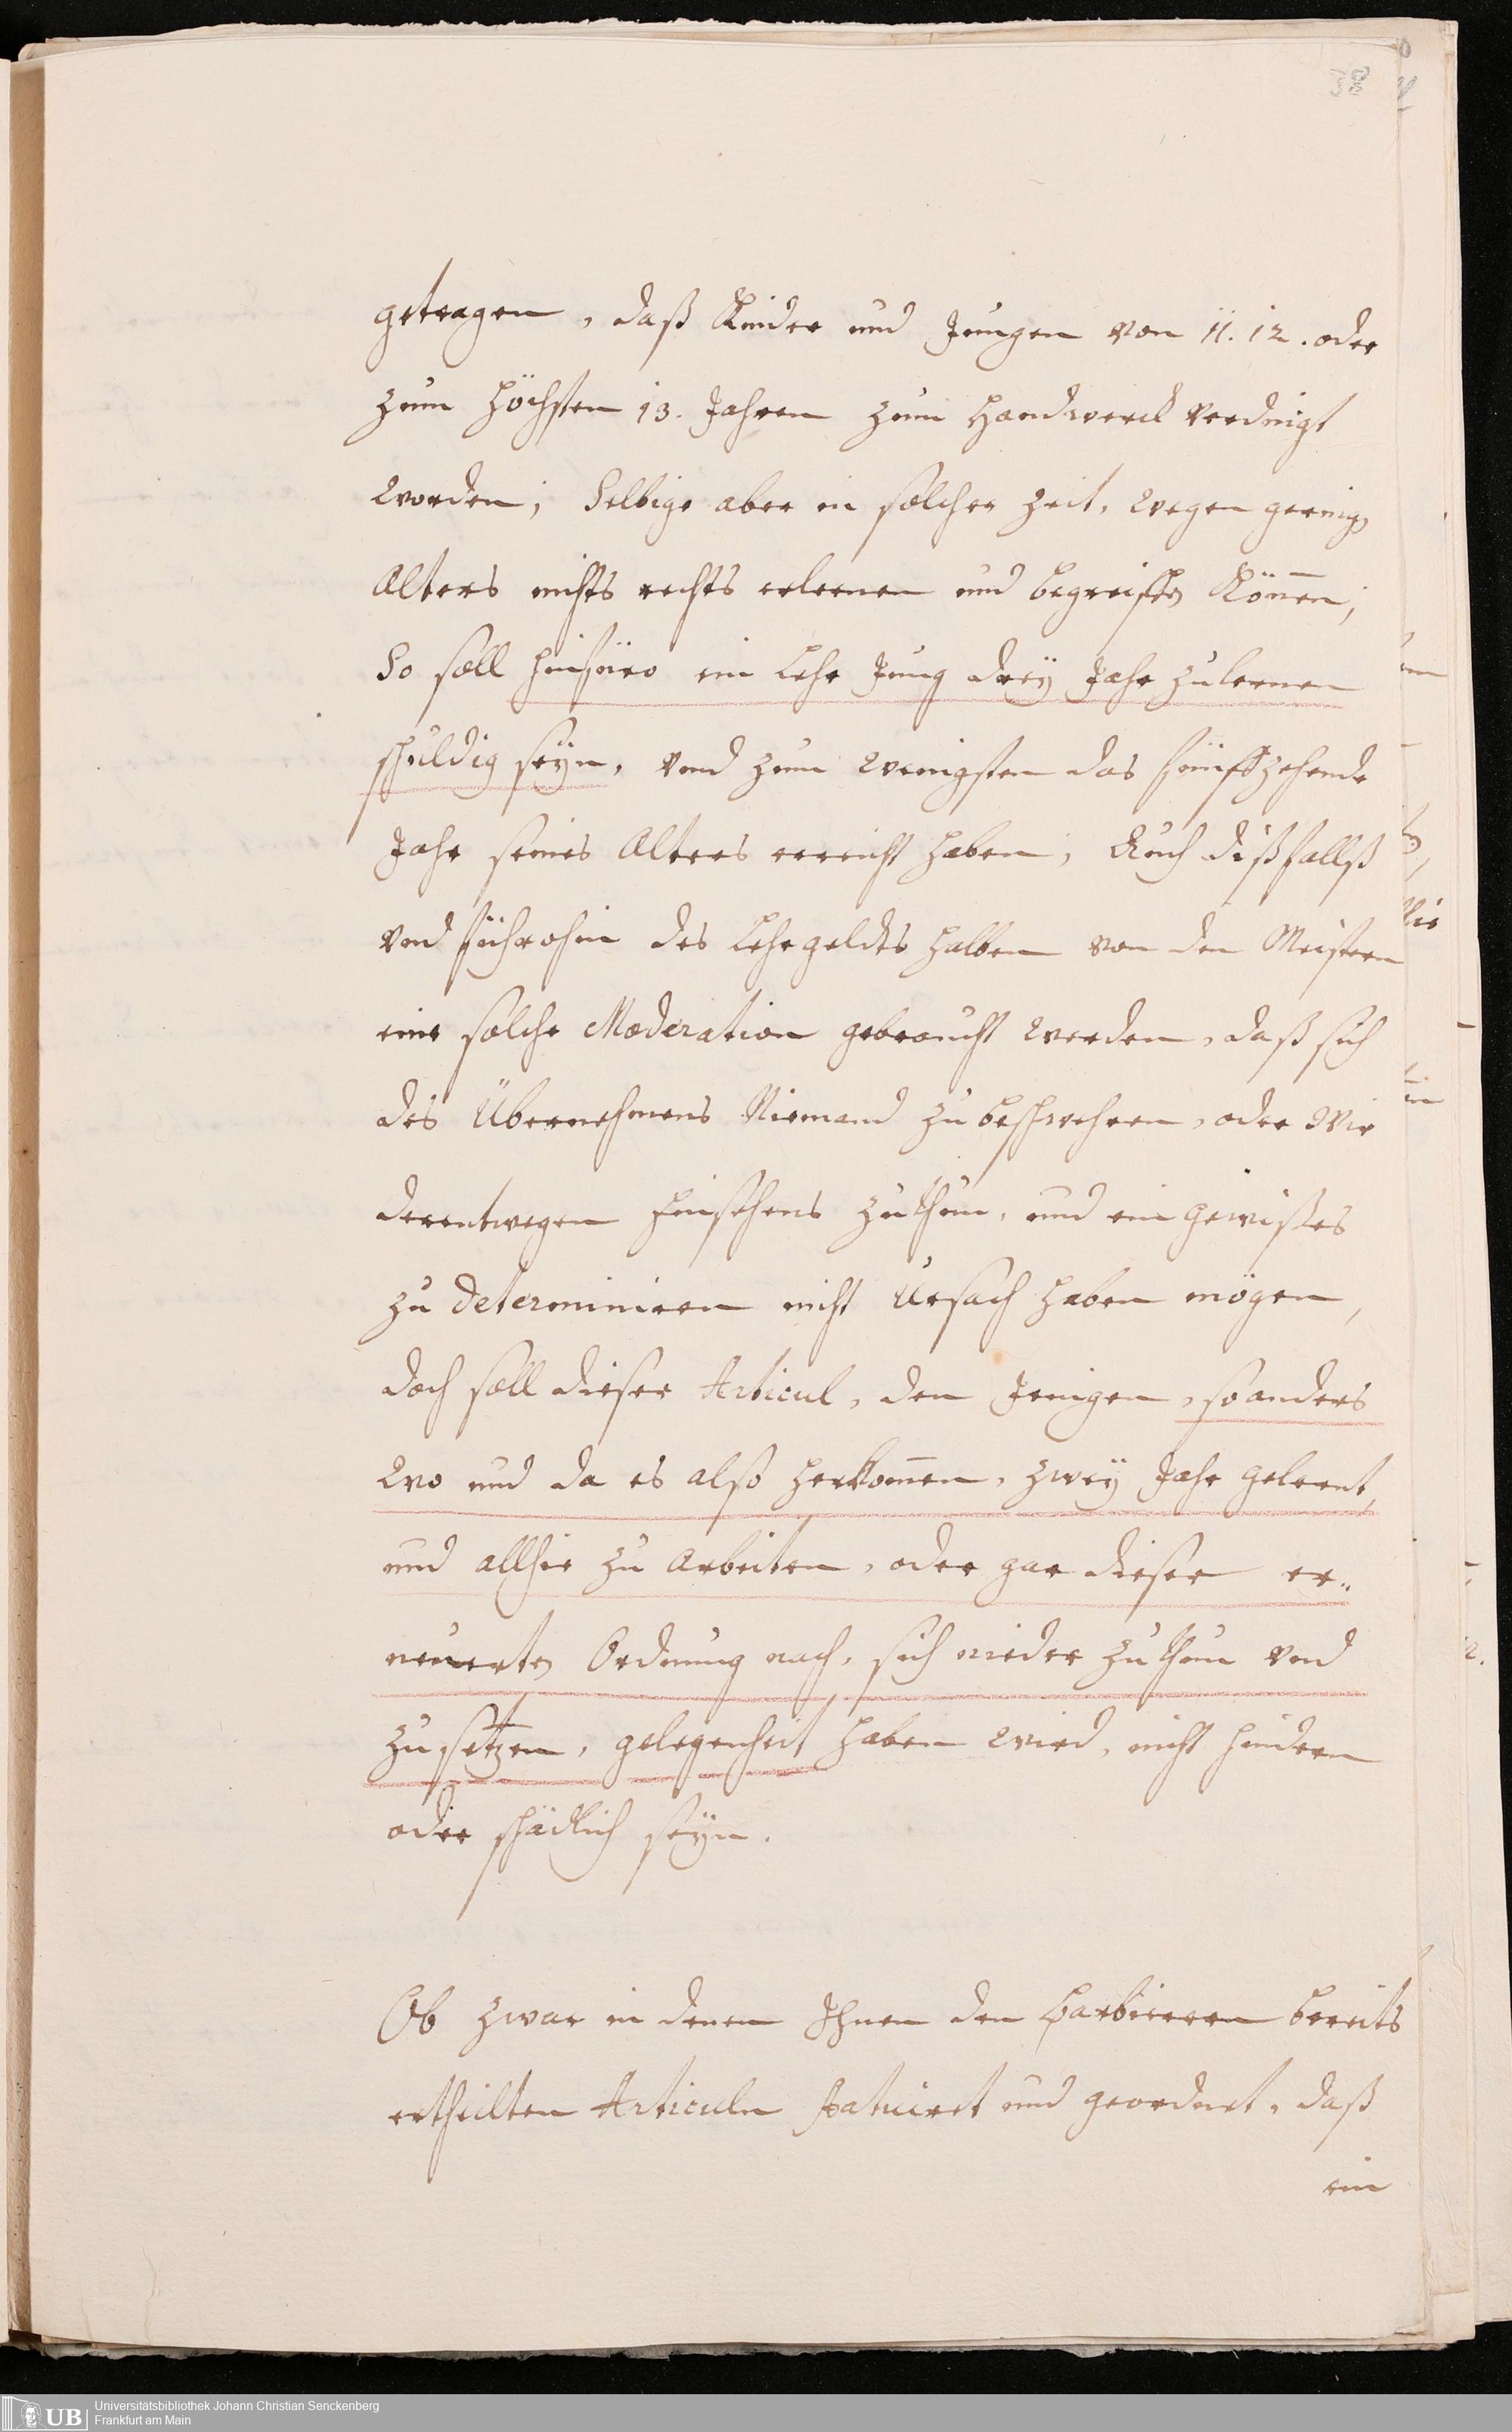 38
getragen, daß Kinder und Jungen von 11. 12. oder
zum höchsten 13. Jahren zum Handwerck verdingt
worden; Selbige aber in solcher Zeit, wegen gering
Alters nichts rechts erlernen und begreiffen können;
So soll hinfüro ein Lehr Jung dreÿ Jahr zulernen
schuldig seÿn, vnd zum wenigsten das fünffzehende
Jahr seines Alters erreicht haben, Auch dißfallß
vnd führohin des Lehrgeldes halben von den Meistern
eine solche Moderation gebraucht werden, daß sich
des Übernehmens Niemand zu beschwehren, oder Wir
derentwegen Einsehens zuthun, und ein gewißes
zu determiniren nicht Ursach haben mögen,
doch soll dieser Articul, den Jenigen, so anders
wo und da es also herkommen, zweÿ Jahr gelernt,
und allhie zu Arbeiten, oder gar dieser er„
neuerten Ordnung nach, sich nieder zuthun vnd
zu setzen, gelegenheit haben wird, nicht hindern
oder schädlich seÿn.
Ob zwar in denen Ihnen den Barbierern bereits
ertheilten Articuln statuiret und geordnet, daß
ein
UB
Universitätsbibliothek Johann Christian Senckenberg
Frankfurt am Main